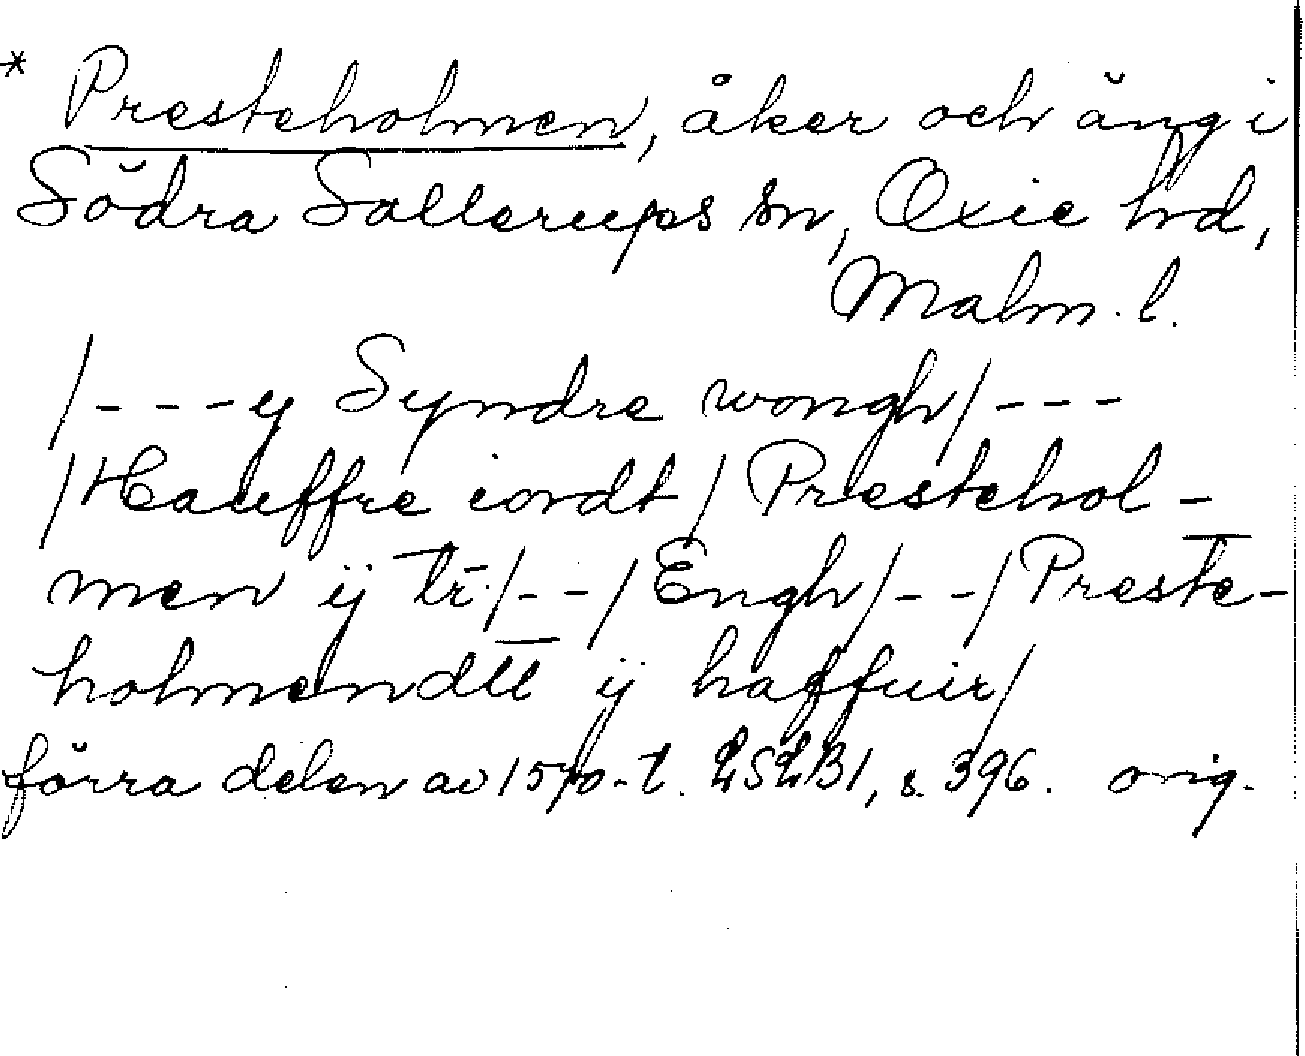 * Presteholmen, åker och äng i
Södra Sallerups sn, Oxie hd,
Malm. l.
/---y Syndre wongh/---
/Hauffre iordt/ Prestehol-
men ij tr̄./--/Engh/--/Preste-
holmendtt ij haffuir/
förra delen av 1570-t. LSLB1, s. 396. orig.